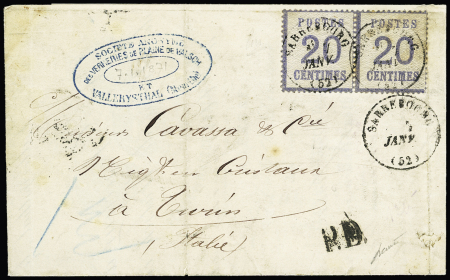 POSTES
20
CENTIMES
POSTES
20
CENTIMES
SARREBOURG
JANV
(52)
SOCIETE ANONYME
DES VERRERIES DE PLAINE DE WALSCH
ET
VALLERYSTHAL
SARREBOURG
JANV
(52)
Cavassa & Cie
à Turin
(Italie)
P.D.